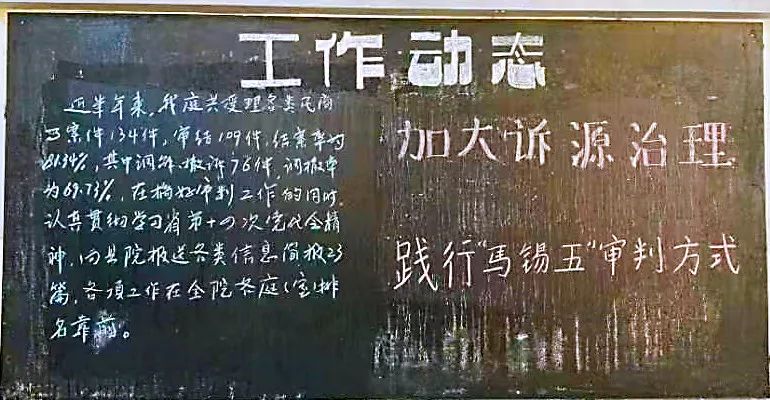 工作动态
近半年来,我庭共受理各类民商
事案件134件,审结109件,结案率为
81.34%,其中调解、撤诉76件,调撤率
为69.73%,在搞好审判工作的同时,
认真贯彻学习省第十四次党代会精
神,向县院报送各类信息简报23
篇,各项工作在全院各庭(室)排
名靠前。
加大诉源治理
践行"马锡五"审判方式